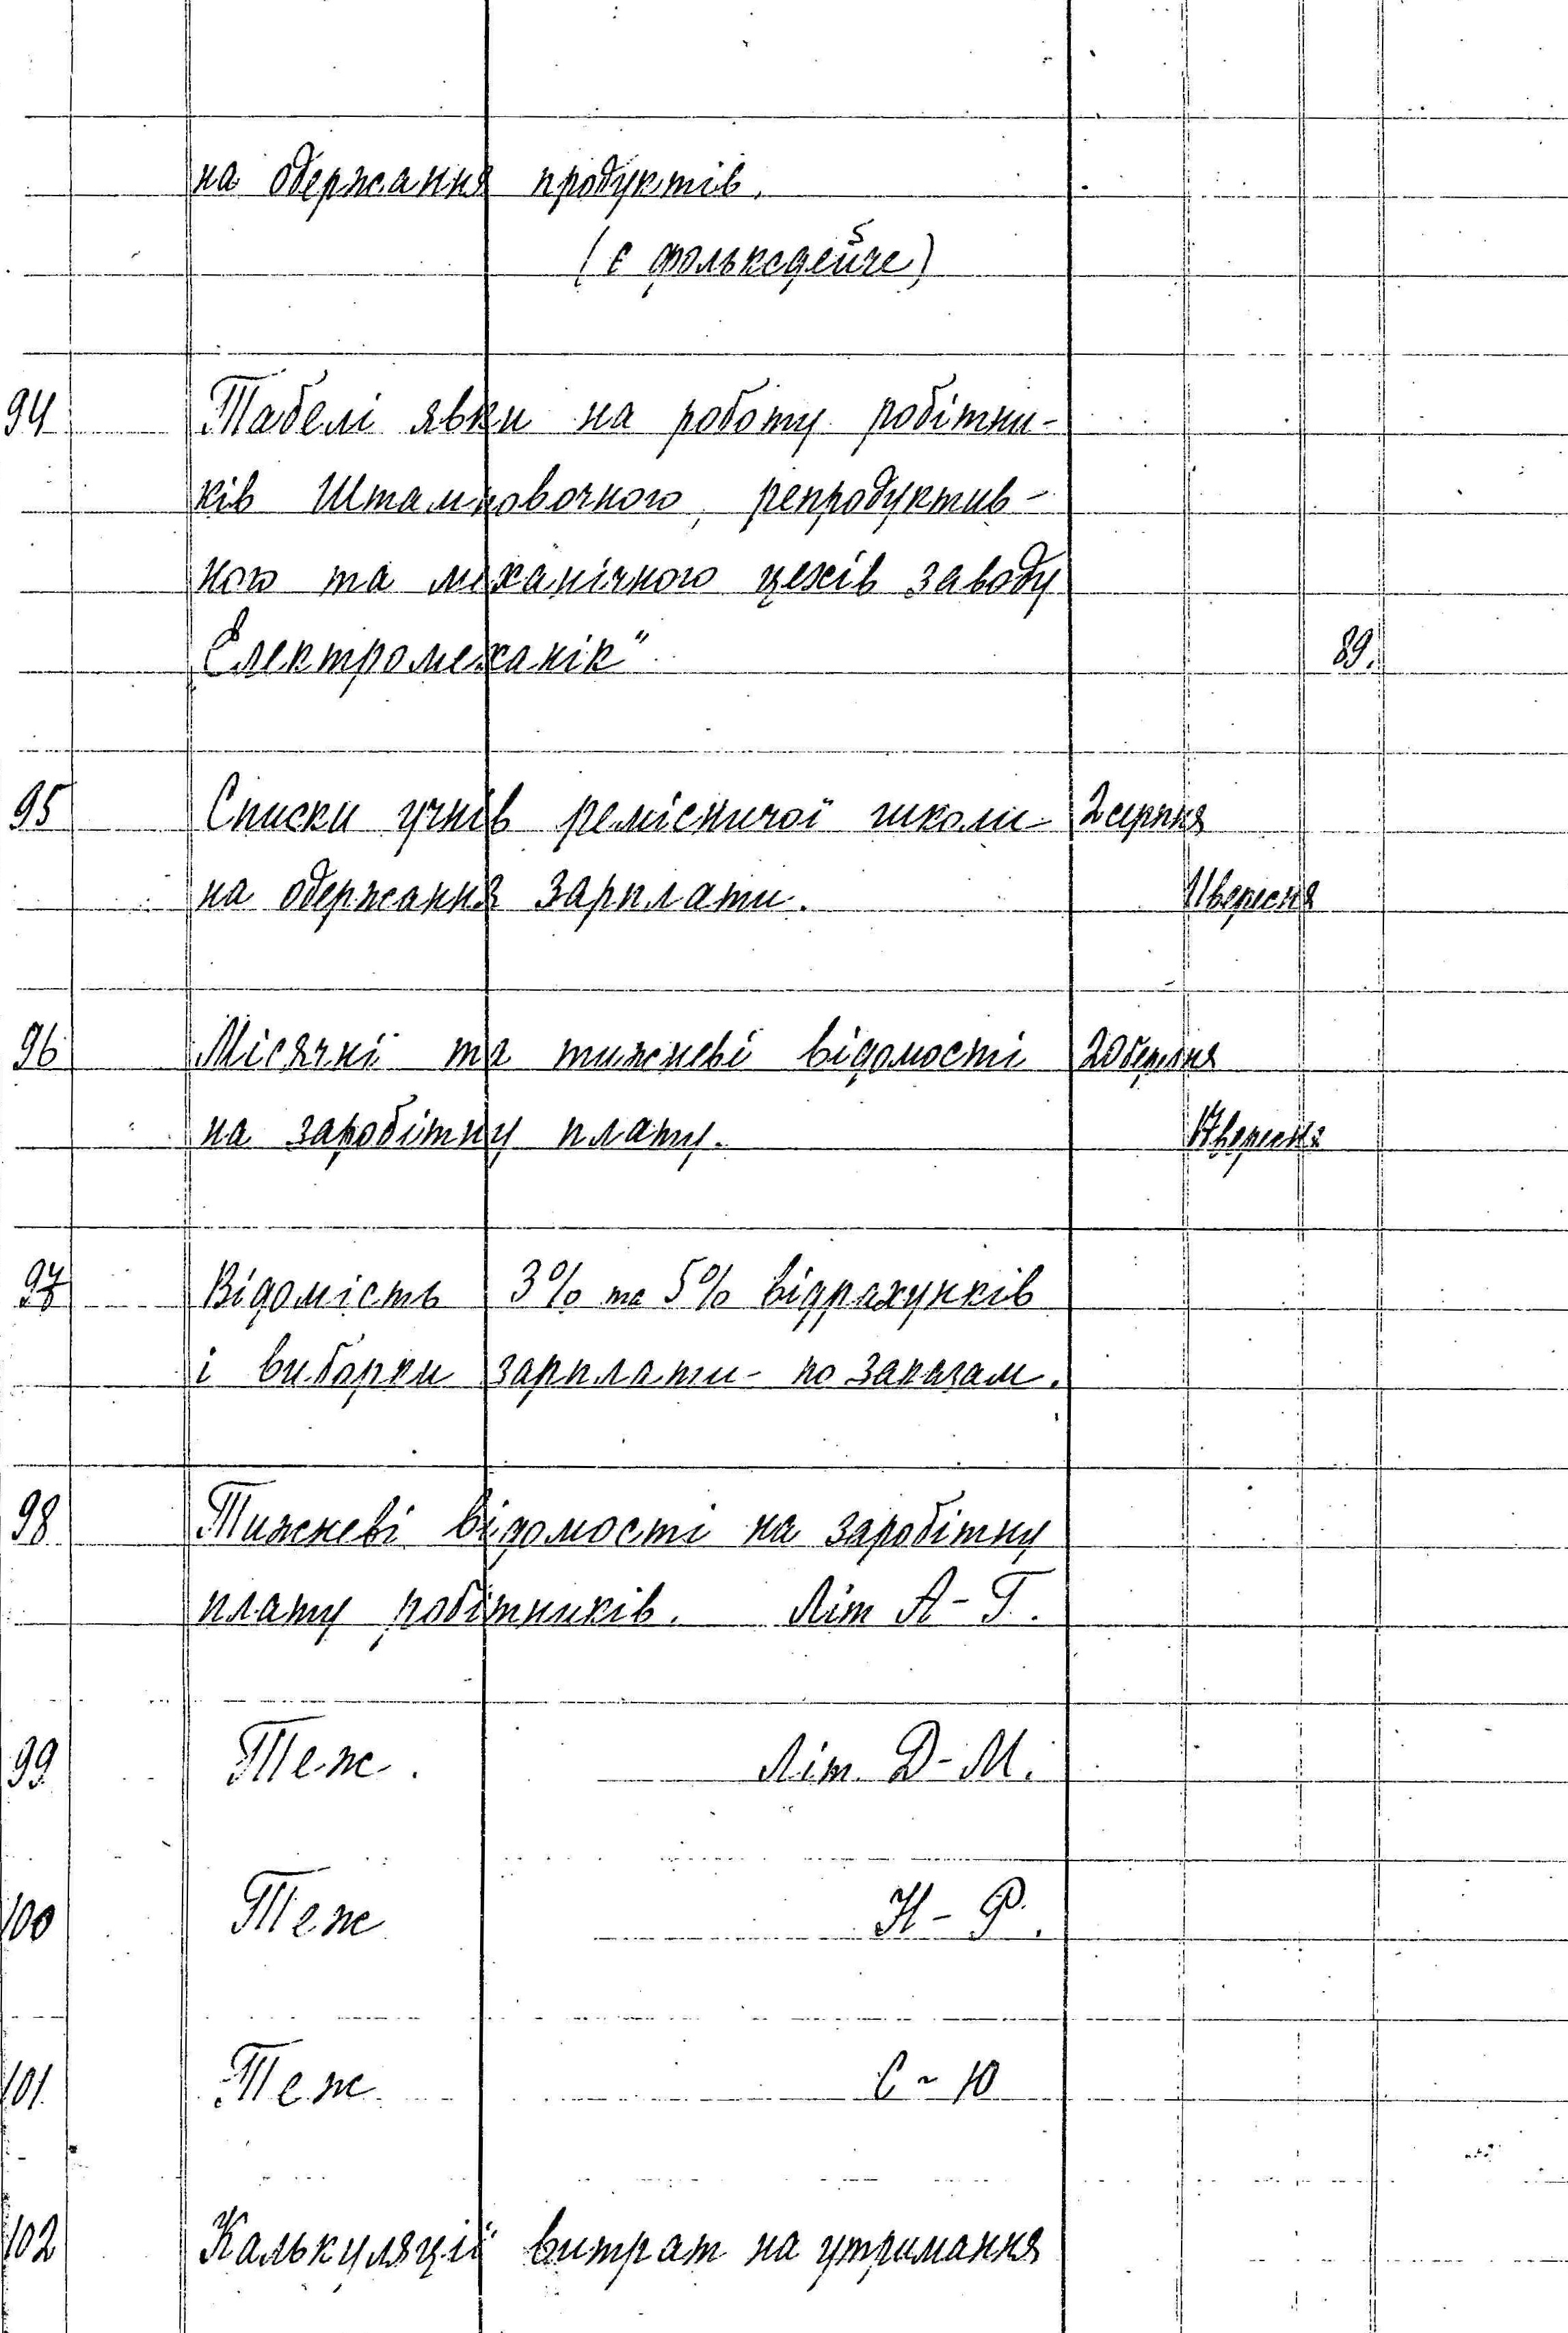 на одержання продуктів.
(є фольксдейче)
94 Табелі явки на роботу робітни-
ків Штамповочного, репродуктив-
ного та механічного цехів заводу
Електромеханік" 89.
95 Списки учнів ремісничої школи 2 серпня
на одержання зарплати. 11 вересня
96 Місячні та тижневі відомості 20 березня
на заробітну плату. 17 вересня
97 Відомість 3% та 5% відрахунків
і виборки зарплати по заказам.
98 Тижневі відомості на заробітну
плату робітників. Літ А-Г.
99 Теж. Літ. Д-М.
100 Теж Н-Р.
101 Теж С-Ю
102 Калькуляції витрат на утримання